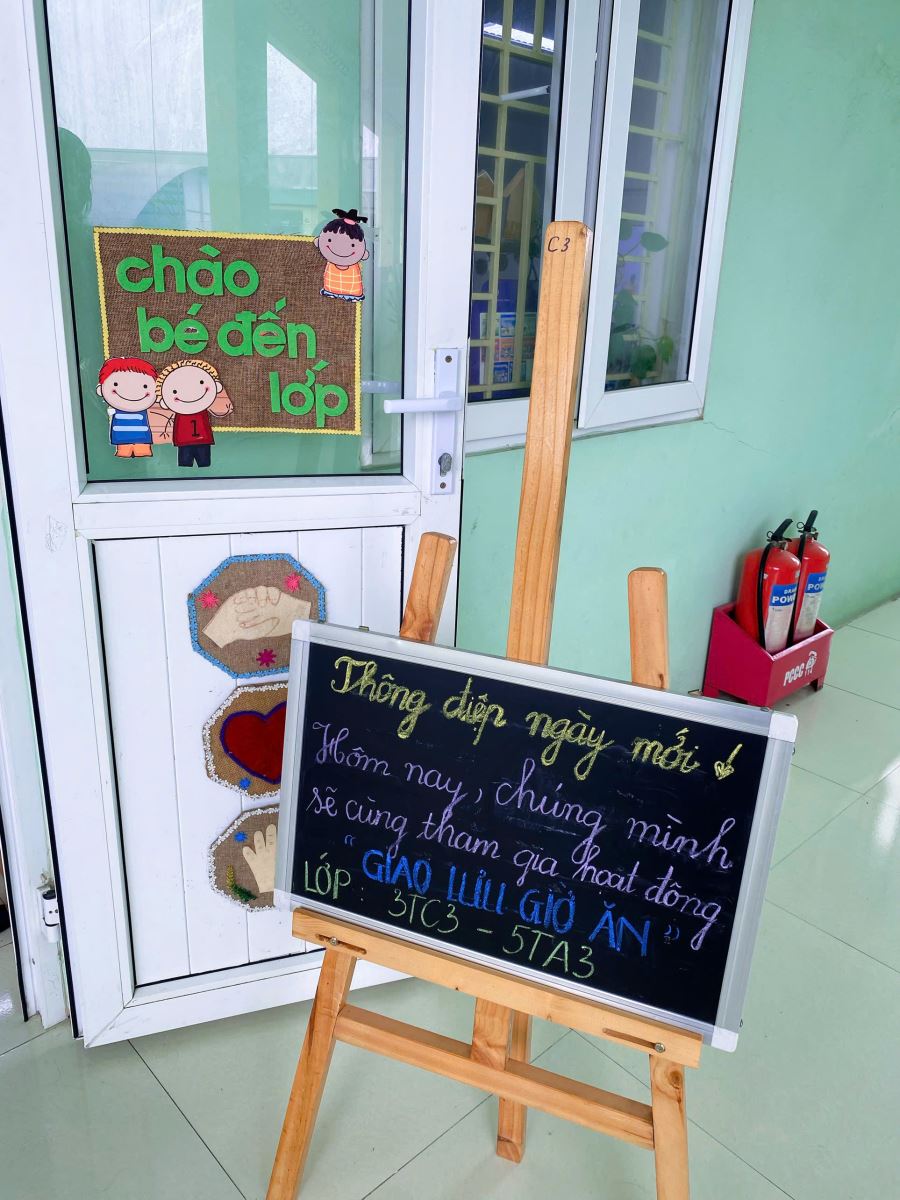 chào
bé đến
lớp
1
C3
Thông điệp ngày mới
Hôm nay, chúng mình
sẽ cùng tham gia hoạt động
"GIAO LƯU GIỜ ĂN"
LỚP: 3TC3 - 5TA3
POW
POW
PCCC